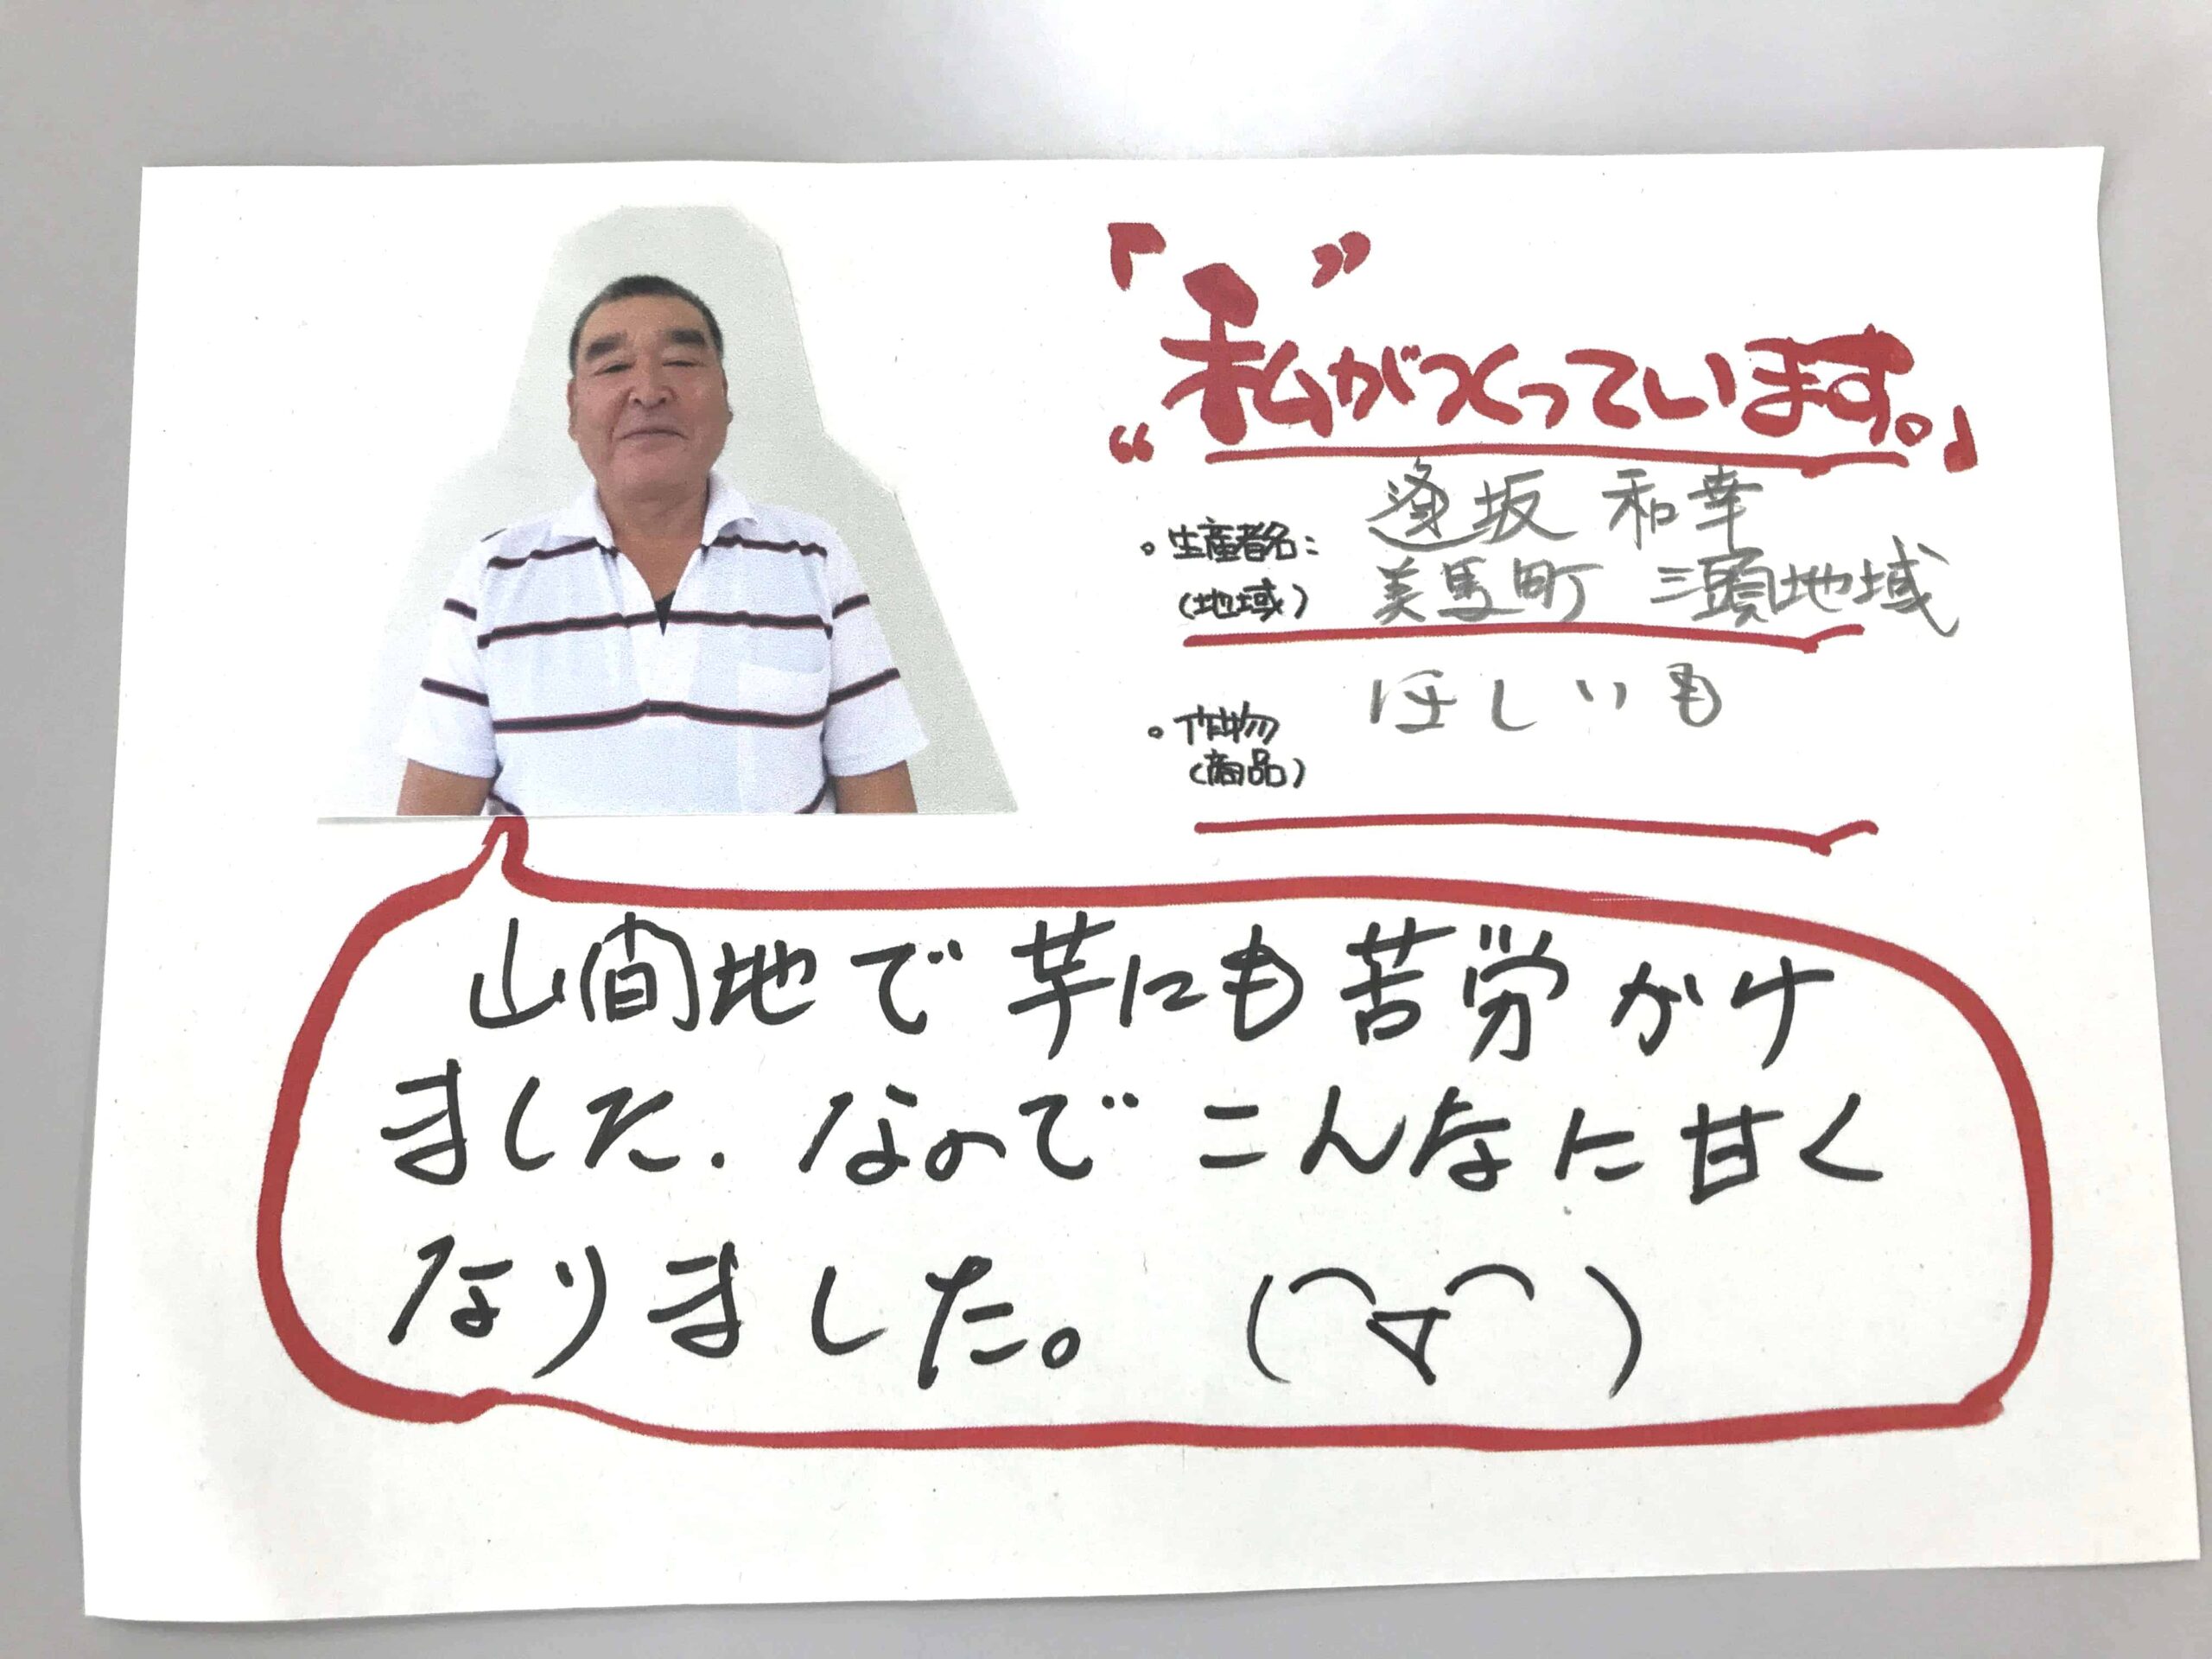 「“私”がつくっています。」
。生産者名: 逢坂 和幸
(地域) 美馬町 三頭地域
。作物 ほしいも
(商品)
山間地で芋にも苦労かけ
ました.なのでこんなに甘く
なりました。(⌒▽⌒)